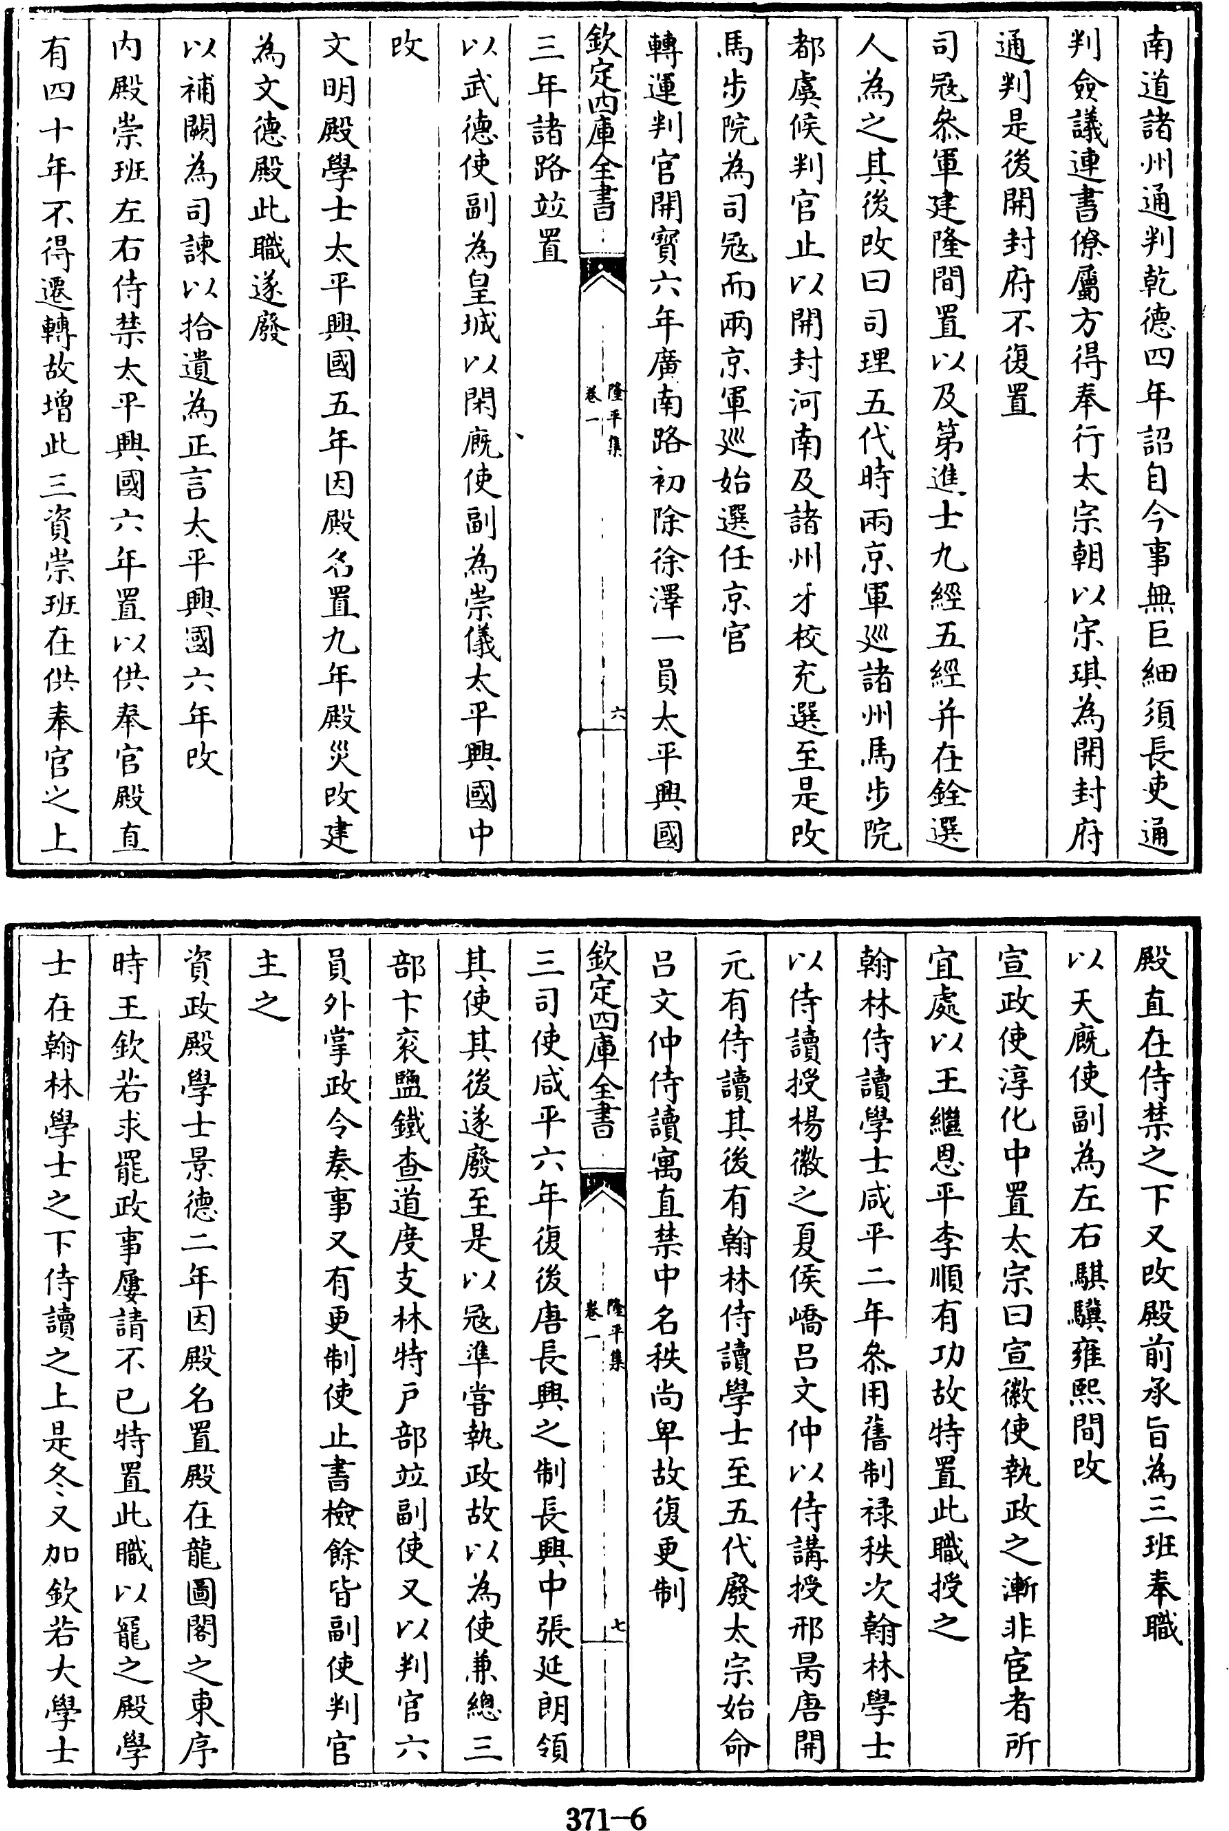 南道諸州通判乾德四年詔自今事無巨細須長吏通
判僉議連書僚屬方得奉行太宗朝以宋琪為開封府
通判是後開封府不復置
司冦叅軍建隆間置以及第進士九經五經并在銓選
人為之其後改曰司理五代時兩京軍廵諸州馬步院
都虞候判官止以開封河南及諸州牙校充選至是改
馬步院為司冦而兩京軍廵始選任京官
轉運判官開寳六年廣南路初除徐澤一員太平興國
欽定四庫全書
隆平集
卷一
六
三年諸路竝置
以武德使副為皇城以閑廐使副為崇儀太平興國中
改
文明殿學士太平興國五年因殿名置九年殿災改建
為文德殿此職遂廢
以補闕為司諫以拾遺為正言太平興國六年改
内殿崇班左右侍禁太平興國六年置以供奉官殿直
有四十年不得遷轉故增此三資崇班在供奉官之上
殿直在侍禁之下又改殿前承旨為三班奉職
以天廐使副為左右騏驥雍熙間改
宣政使淳化中置太宗曰宣徽使執政之漸非宦者所
宜處以王繼恩平李順有功故特置此職授之
翰林侍讀學士咸平二年叅用舊制禄秩次翰林學士
以侍讀授楊徽之夏侯嶠吕文仲以侍講授邢昺唐開
元有侍讀其後有翰林侍讀學士至五代廢太宗始命
吕文仲侍讀寓直禁中名秩尚卑故復更制
欽定四庫全書
隆平集
卷一
七
三司使咸平六年復後唐長興之制長興中張延朗領
其使其後遂廢至是以冦凖嘗執政故以為使兼總三
部卞衮鹽鐵查道度支林特户部竝副使又以判官六
員外掌政令奏事又有更制使止書檢餘皆副使判官
主之
資政殿學士景德二年因殿名置殿在龍圖閣之東序
時王欽若求罷政事屢請不已特置此職以寵之殿學
士在翰林學士之下侍讀之上是冬又加欽若大學士
371-6